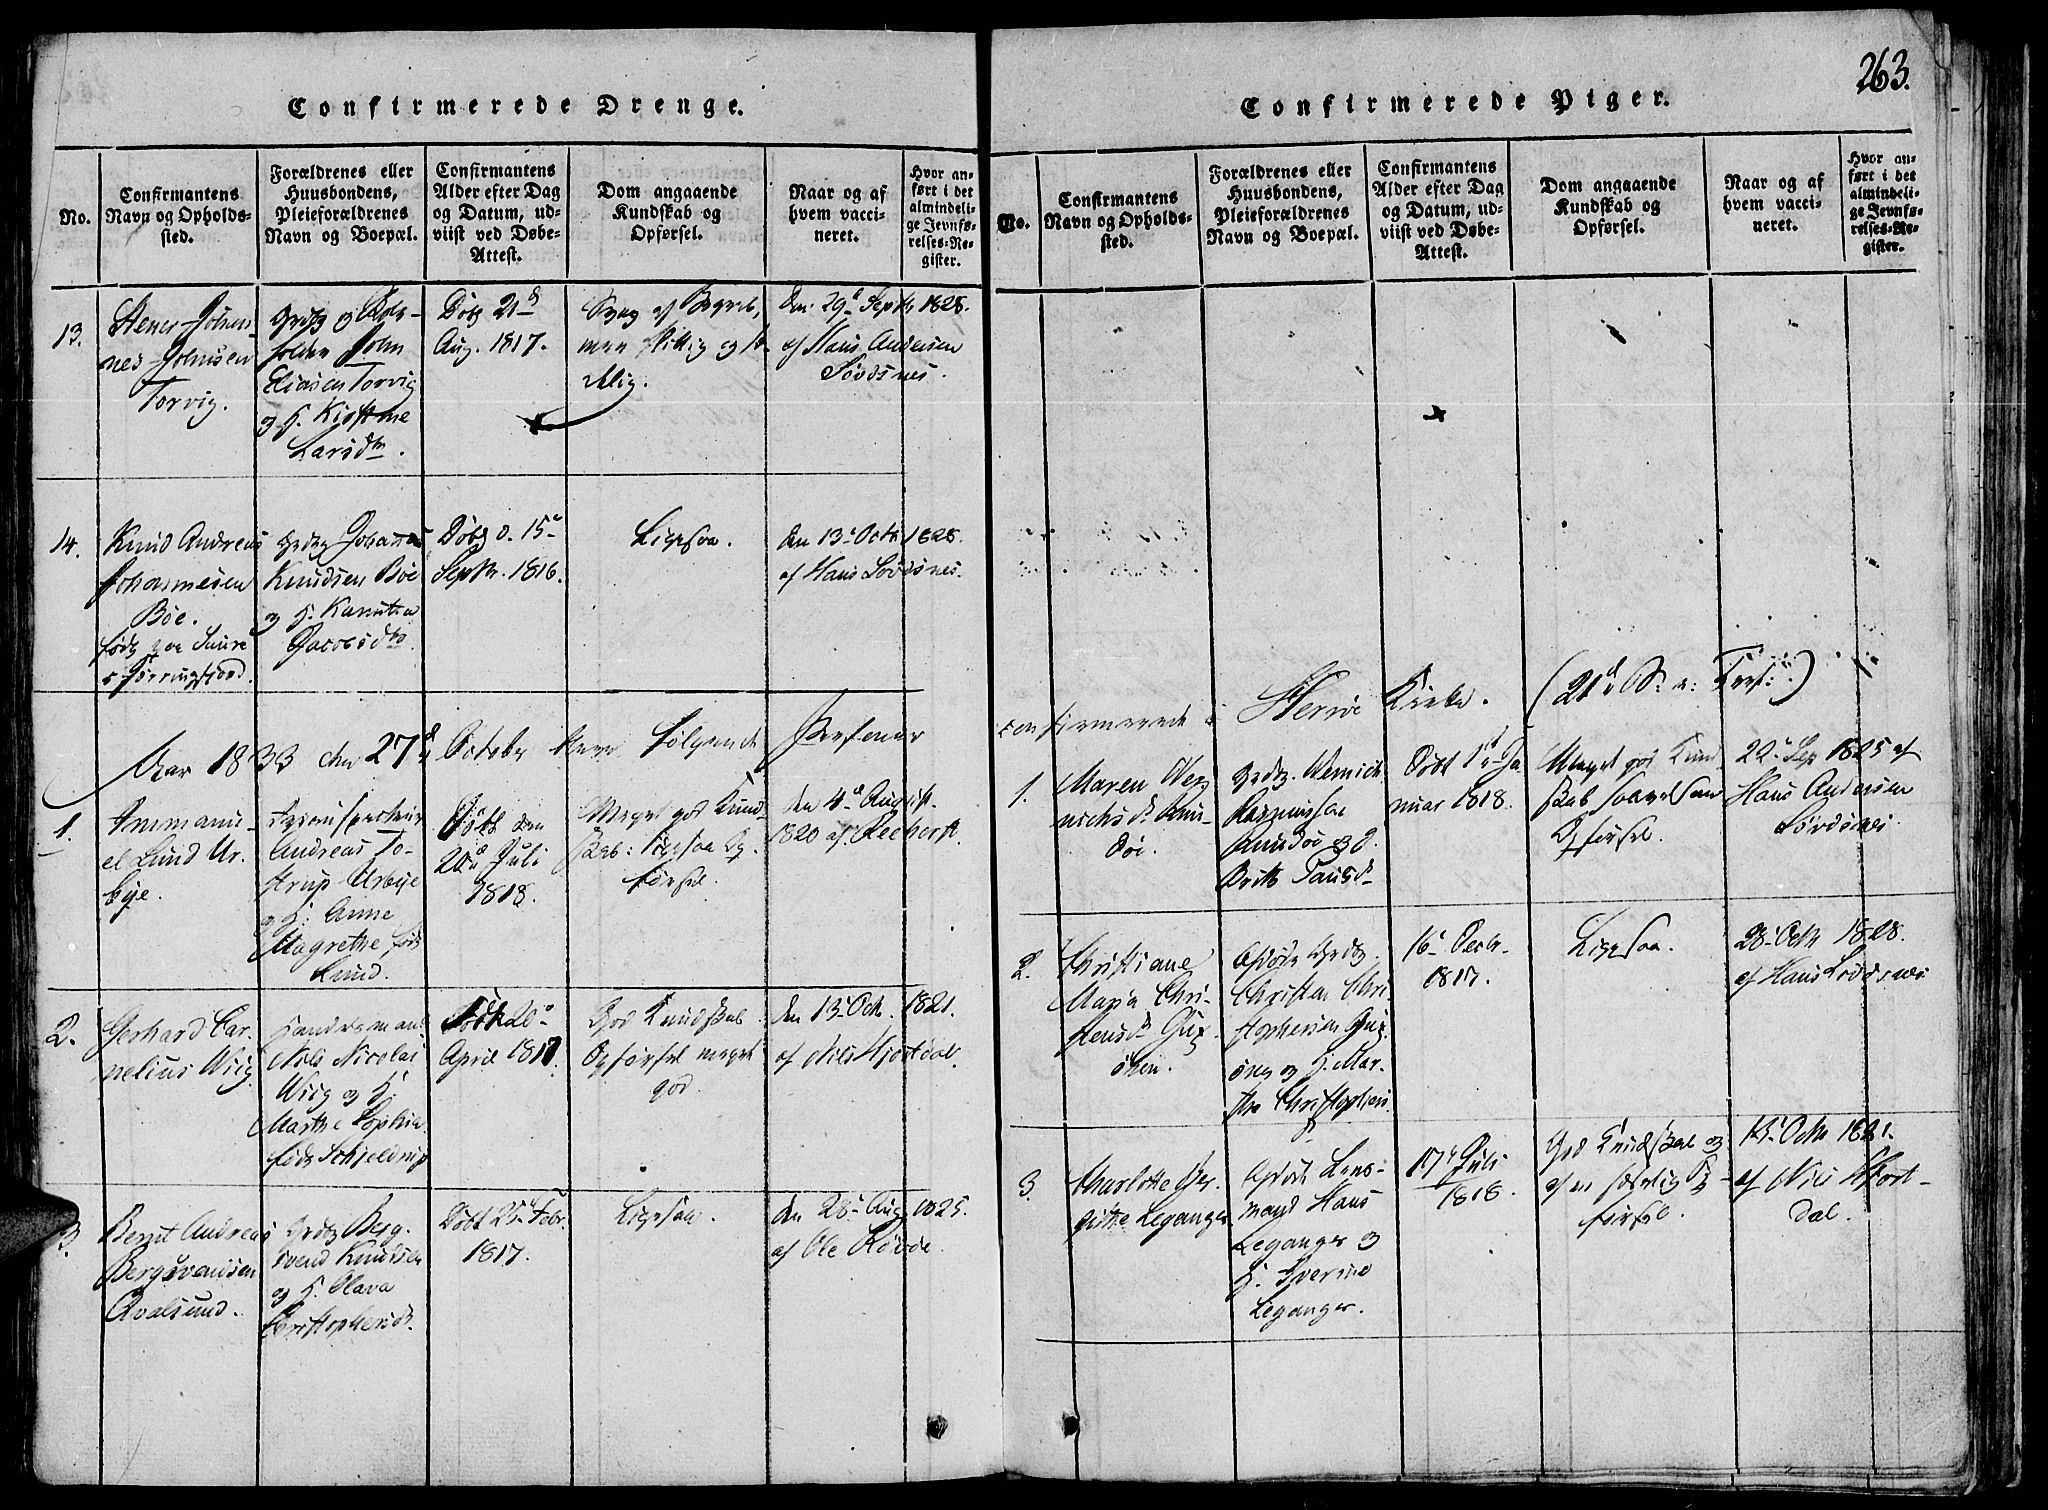 263.
Confirmerede Drenge.
No.
Confirmantens
Navn og Opholds-
sted.
Forældrenes eller
Huusbondens,
Pleieforældrenes
Navn og Boepæl.
Confirmantens
Alder efter Dag
og Datum, ud-
viist ved Døbe-
Attest.
Dom angaaende
Kundskab og
Opførsel.
Naar og af
hvem vacci-
neret.
Hvor an-
ført i det
almindeli-
ge Jevnfø-
relses-Re-
gister.
13.
Johan-
nes Johnsen
Torvig.
Grdbr og
John
Eliasen Torvig
og H. Kirstine
Larsdtr.
Døbt 21d
Aug. 1817.
Svag af Begreb,
men flittig og
den 29d Septbr 1828.
af Hans Andersen
Søvdsnes.
14.
Knud Andreas
Johannesen
Bøe.
født paa
Grdbr Johannes
Knudsen Bøe
og H. Kanutta
Jacobsdtr
Døbt d. 15d
Septbr. 1816.
Ligesaa.
den 13d Octbr 1828.
af Hans Søvdsnes.
Aar 1833 den 27d October bleve følgende Personer
1.
Immanu-
el Lund Ur-
bye.
Andreas To-
strup Urbye
og H. Anne
Magrethe født
Lund.
Født den
20d Juli
1818.
Meget god Kund-
skab: ligesaa Op-
førsel.
den 4d August
1820 af Rechorst.
2.
Gerhard Cor-
nelius Wiig.
Handelsmand
Nils Nicolai
Wiig og H.
Marthe Sophia
født Schjeldrup
Født 20d
April 1817.
God Kundskab
Opførsel meget
god.
den 13d Octb. 1821.
af Nils Hjortdal.
3.
Bernt Andreas
Bergsvendsen
Qvalsund.
Grdbr Berg-
svend Knudsen
og H. Olava
Christophersdtr.
Døbt 25d Febr.
1817.
Ligesaa.
den 28d Aug 1825.
af Ole Røvde.
Confirmerede Piger.
No.
Confirmantens
Navn og Opholds-
sted.
Forældrenes eller
Huusbondens,
Pleieforældrenes
Navn og Boepæl.
Confirmantens
Alder efter Dag
og Datum, ud-
viist ved Døbe-
Attest.
Dom angaaende
Kundskab og
Opførsel.
Naar og af
hvem vacci-
neret.
Hvor an-
ført i det
almindeli-
ge Jevnfø-
relses-Re-
gister.
confirmerede i Herrøe Kirke. (21d S: e: Tref:)
1.
Maren Wer-
nichsdtr
Grdbr. Wernich
Rasmussen
og
Brithe
Døbt 1d Ja-
nuar 1818.
Meget god Kund-
skab saavelsom
Opførsel.
22d Sep 1825 af
Hans Andersen
Søvdsnes
2.
Christiane
Maria Chri-
stensdtr
Afdøde Grdbr.
Christen Chri-
stophersen
og H. Mar-
the Christophersd.
16d Decbr.
1817.
Ligesaa.
28d Octbr 1828.
af Hans Søvdsnes
3.
Charlotte Ber-
githe Leganger
Afdøde Lens-
mand Hans
Leganger og
H. Sverine
Leganger.
17d Juli
1818.
God Kundskab og
af en sædelig Op-
førsel.
13d Octbr 1821.
af Nils Hjort-
dal.